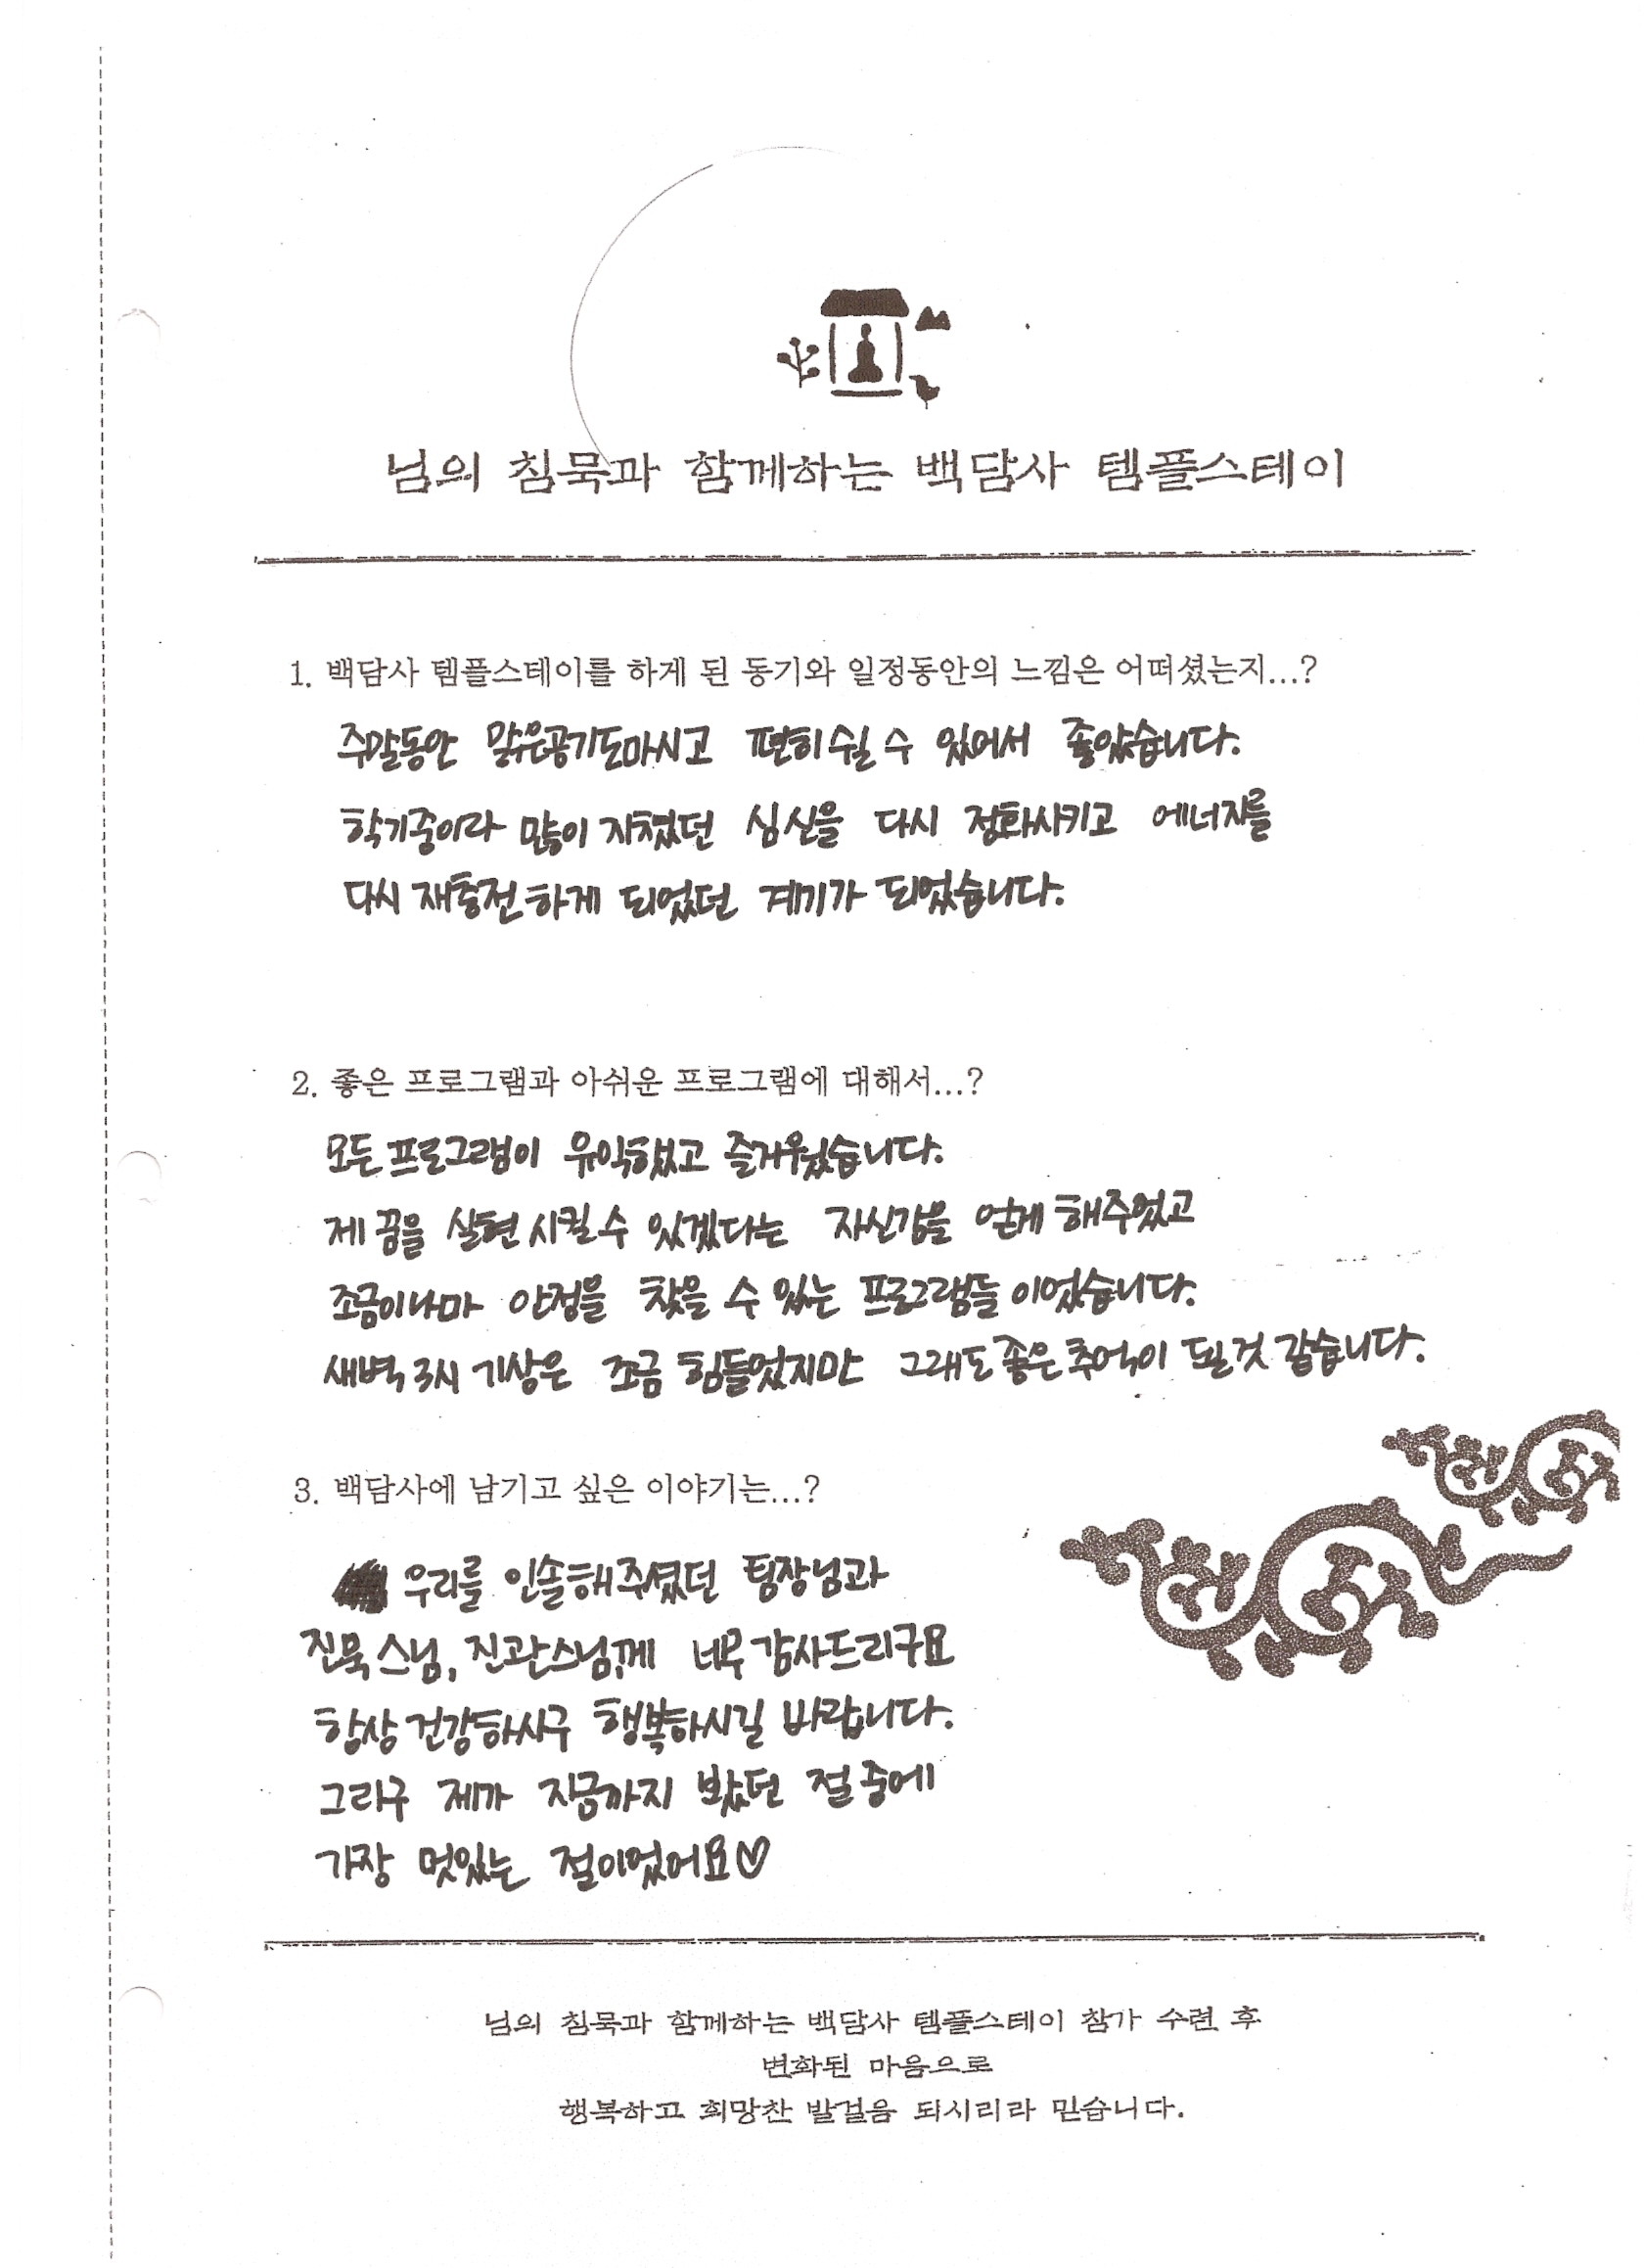 님의 침묵과 함께하는 백담사 템플스테이
1. 백담사 템플스테이를 하게 된 동기와 일정동안의 느낌은 어떠셨는지...?
주말동안 맑은공기도마시고 편히 쉴 수 있어서 좋았습니다.
학기중이라 많이 지쳤던 심신을 다시 정화시키고 에너지를
다시 재충전하게 되었던 계기가 되었습니다.
2. 좋은 프로그램과 아쉬운 프로그램에 대해서...?
모든 프로그램이 유익했고 즐거웠습니다.
제 꿈을 실현 시킬 수 있겠다는 자신감을 얻게 해주었고
조금이나마 안정을 찾을 수 있는 프로그램들 이었습니다.
새벽 3시 기상은 조금 힘들었지만 그래도 좋은 추억이 될 것 같습니다.
3. 백담사에 남기고 싶은 이야기는...?
우리를 인솔해주셨던 팀장님과
진묵 스님, 진관스님께 너무 감사드리구요
항상 건강하시구 행복하시길 바랍니다.
그리구 제가 지금까지 봤던 절 중에
가장 멋있는 절이었어요♡
님의 침묵과 함께하는 백담사 템플스테이 참가 수련 후
변화된 마음으로
행복하고 희망찬 발걸음 되시리라 믿습니다.